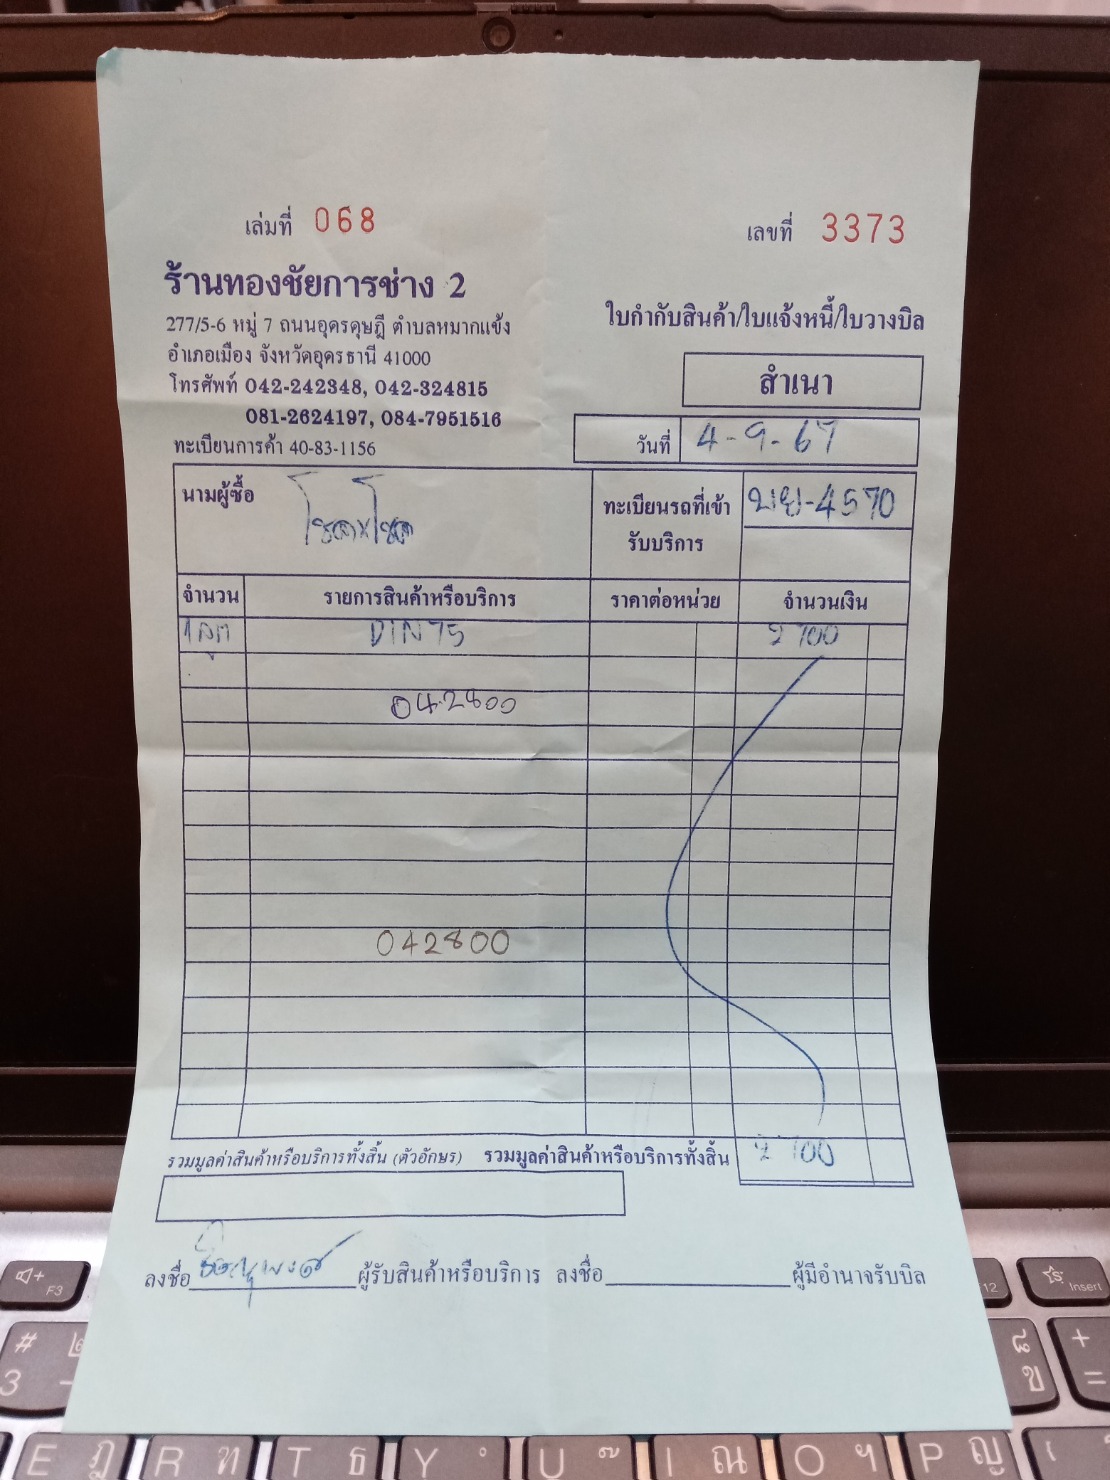 เล่มที่ 068
เลขที่ 3373
ร้านทองชัยการช่าง 2
277/5-6 หมู่ 7 ถนนอุดรดุษฎี ตำบลหมากแข้ง
อำเภอเมือง จังหวัดอุดรธานี 41000
โทรศัพท์ 042-242348, 042-324815
081-2624197, 084-7951516
ทะเบียนการค้า 40-83-1156
ใบกำกับสินค้า/ใบแจ้งหนี้/ใบวางบิล
สำเนา
วันที่ 4-9-67
นามผู้ซื้อ
ทะเบียนรถที่เข้า
รับบริการ
-4570
จำนวน รายการสินค้าหรือบริการ ราคาต่อหน่วย จำนวนเงิน
1 ลูก DIN75 2700
042800
042800
รวมมูลค่าสินค้าหรือบริการทั้งสิ้น (ตัวอักษร) รวมมูลค่าสินค้าหรือบริการทั้งสิ้น
ลงชื่อ ผู้รับสินค้าหรือบริการ ลงชื่อ ผู้มีอำนาจรับบิล
F3
12
Insert
# ๒
3 -
๘
ข
+
=
E ฎ R ฑ T ธ Y U ๊ I ณ O ฯ P ญ